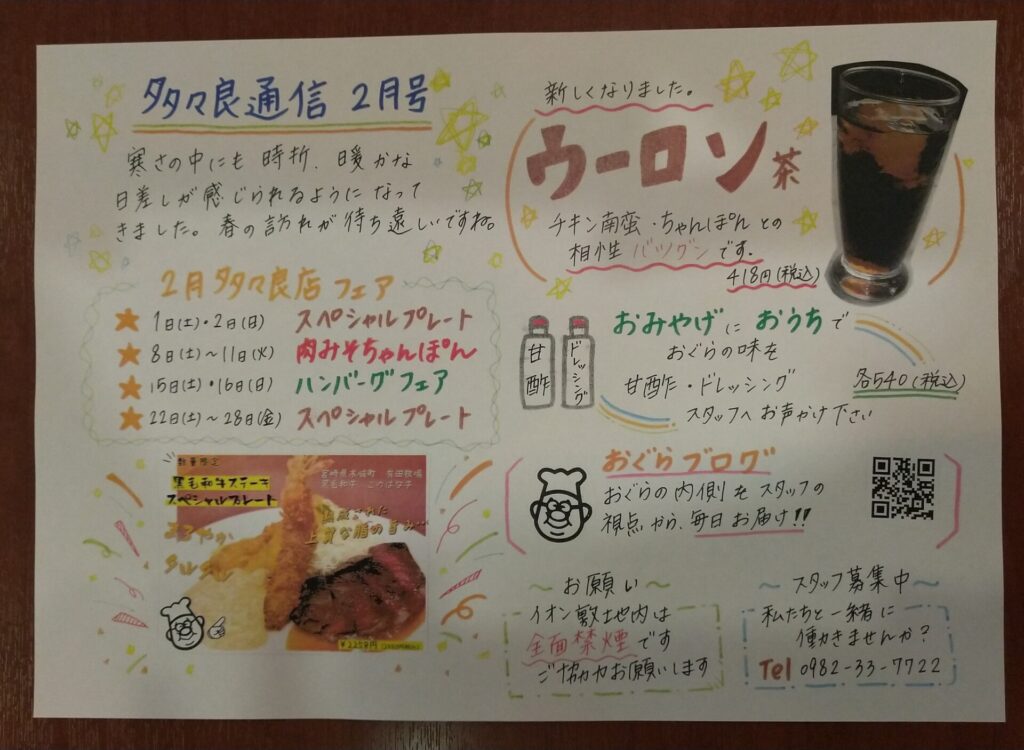 多々良通信 2月号
寒さの中にも 時折、暖かな
日差しが感じられるようになって
きました。春の訪れが待ち遠しいですね。
2月多々良店フェア
1日(土)・2日(日) スペシャルプレート
8日(土)～11日(火) 肉みそちゃんぽん
15日(土)・16日(日) ハンバーグフェア
22日(土)～28日(金) スペシャルプレート
数量限定
黒毛和牛ステーキ
スペシャルプレート
宮崎県木城町 有田牧場
黒毛和牛 このはな子
上質な脂の旨み
まろやか
タルタル
新しくなりました。
ウーロン茶
チキン南蛮・ちゃんぽんとの
相性バツグンです。
418円(税込)
甘酢
ドレッシング
おみやげに おうちで
おぐらの味を
甘酢・ドレッシング
各540(税込)
スタッフへお声かけ下さい
おぐらブログ
おぐらの内側をスタッフの
視点から、毎日お届け!!
～お願い～
イオン敷地内は
全面禁煙です
ご協力お願いします
～スタッフ募集中～
私たちと一緒に
働きませんか?
Tel 0982-33-7722